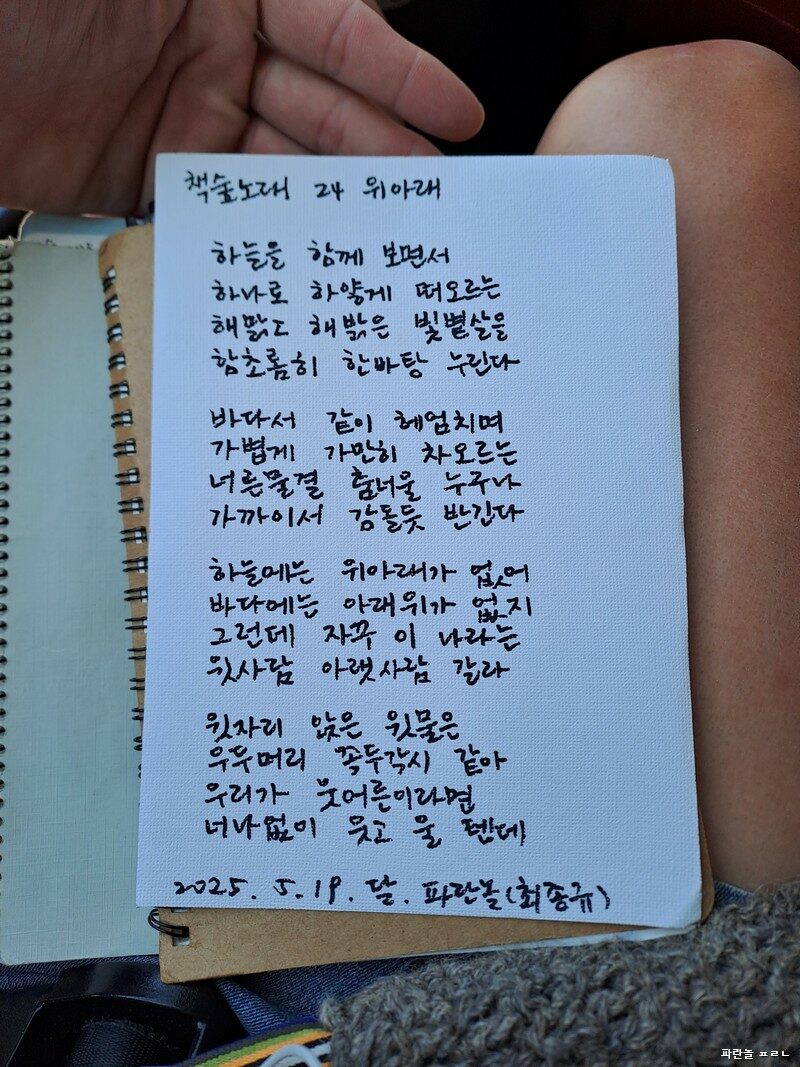 책숲노래 24 위아래
하늘을 함께 보면서
하나로 하얗게 떠오르는
해맑고 해밝은 빛볕살을
함초롬히 한바탕 누린다
바다서 같이 헤엄치며
가볍게 가만히 차오르는
너른물결 춤너울 누구나
가까이서 감돌듯 반긴다
하늘에는 위아래가 없어
바다에는 아래위가 없지
그런데 자꾸 이 나라는
윗사람 아랫사람 갈라
윗자리 앉은 윗물은
우두머리 꼭두각시 같아
우리가 웃어른이라면
너나없이 웃고 울 텐데
2025. 5. 19. 달. 파란놀(최종규)
파란놀 ㅍㄹㄴ